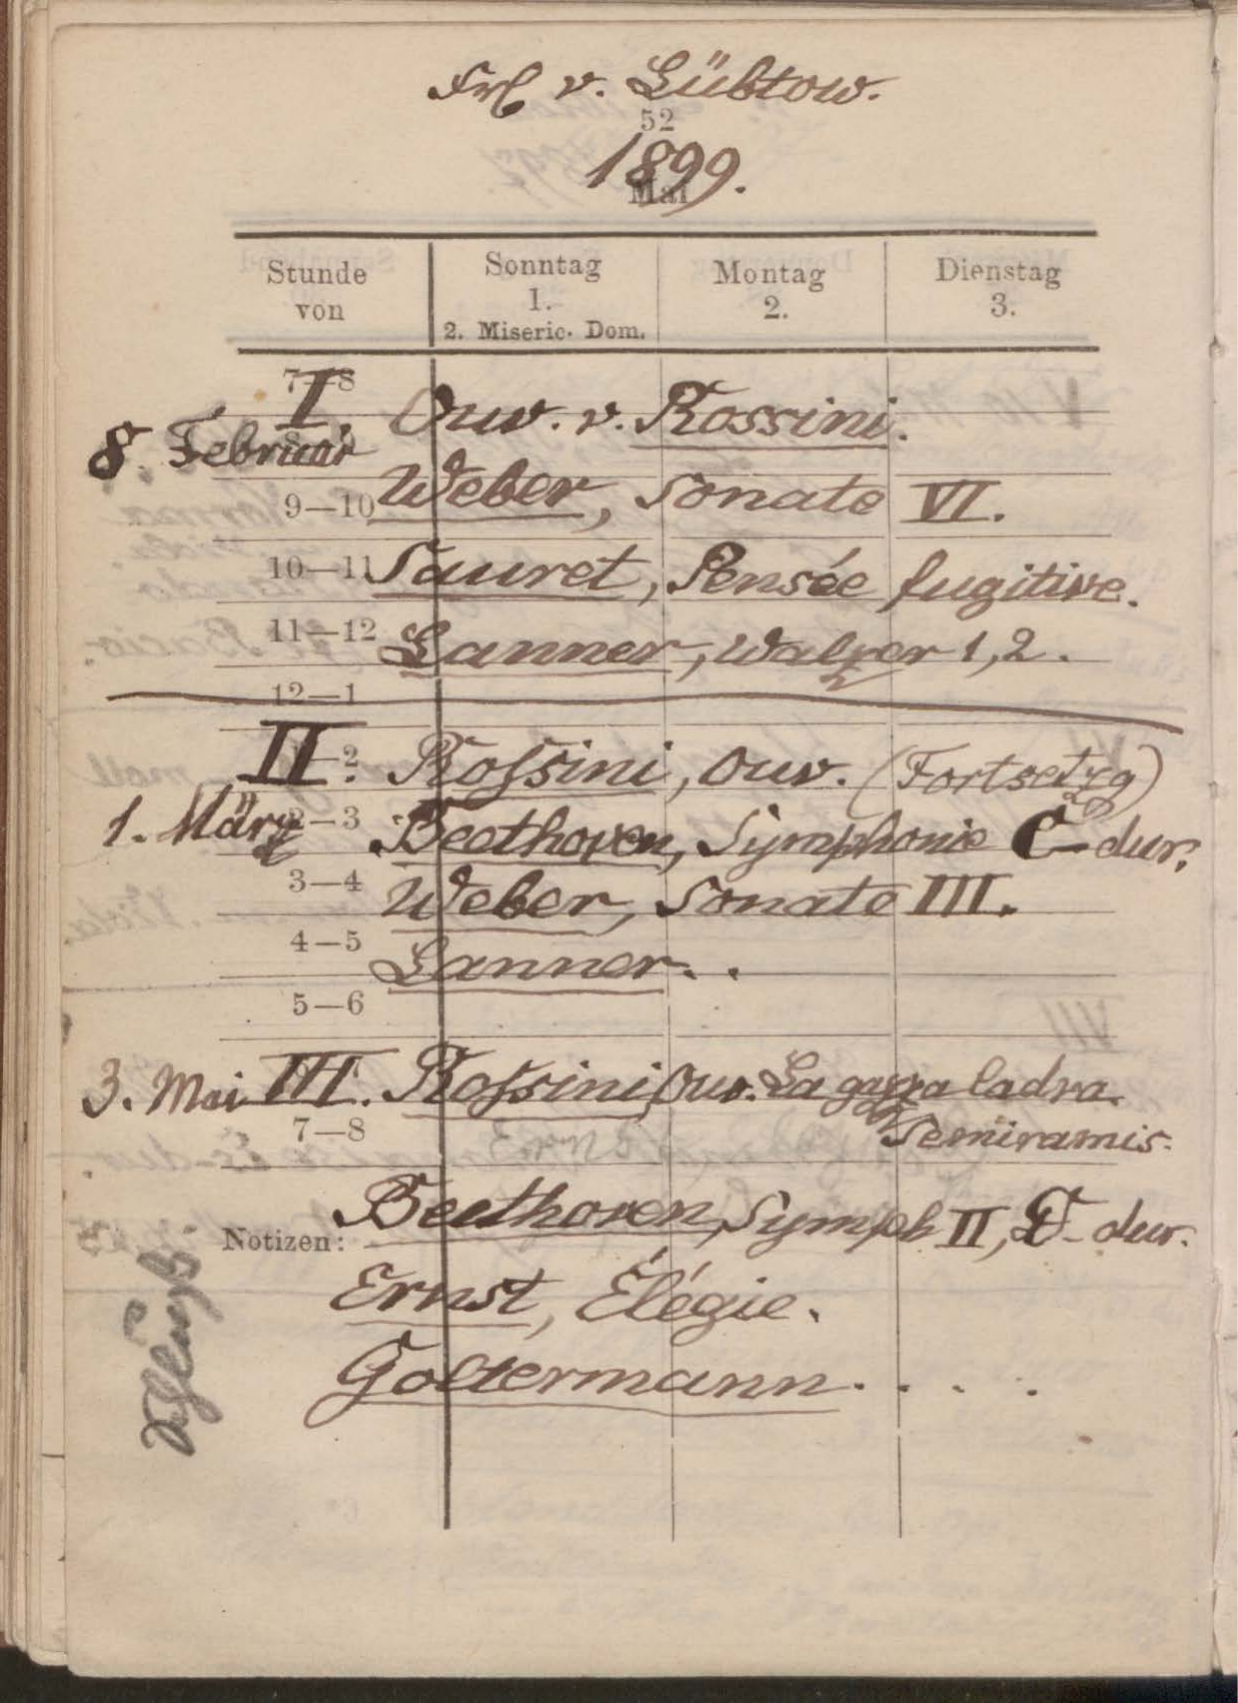 Frl v. Lübtow.
52
1899.
Mai
Stunde von
Sonntag 1. 2. Miseric. Dom.
Montag 2.
Dienstag 3.
7—8
I Ouv. v. Rossini.
8. Februar
9—10 Weber, Sonate VI.
10—11 Sauret, Pensée fugitive.
11—12 Lanner, Walzer 1, 2.
12—1
II. Rossini, Ouv. (Fortsetzg)
1. März 2—3 Beethoven, Symphonie C-dur.
3—4 Weber, Sonate III.
4—5 Lanner. .
5—6
3. Mai III. Rossini, Ouv. La gazza ladra.
7—8 Semiramis.
Beethoven, Symph II, D-dur.
Notizen:
Ernst, Élégie.
Goltermann . . . .
Schluß.